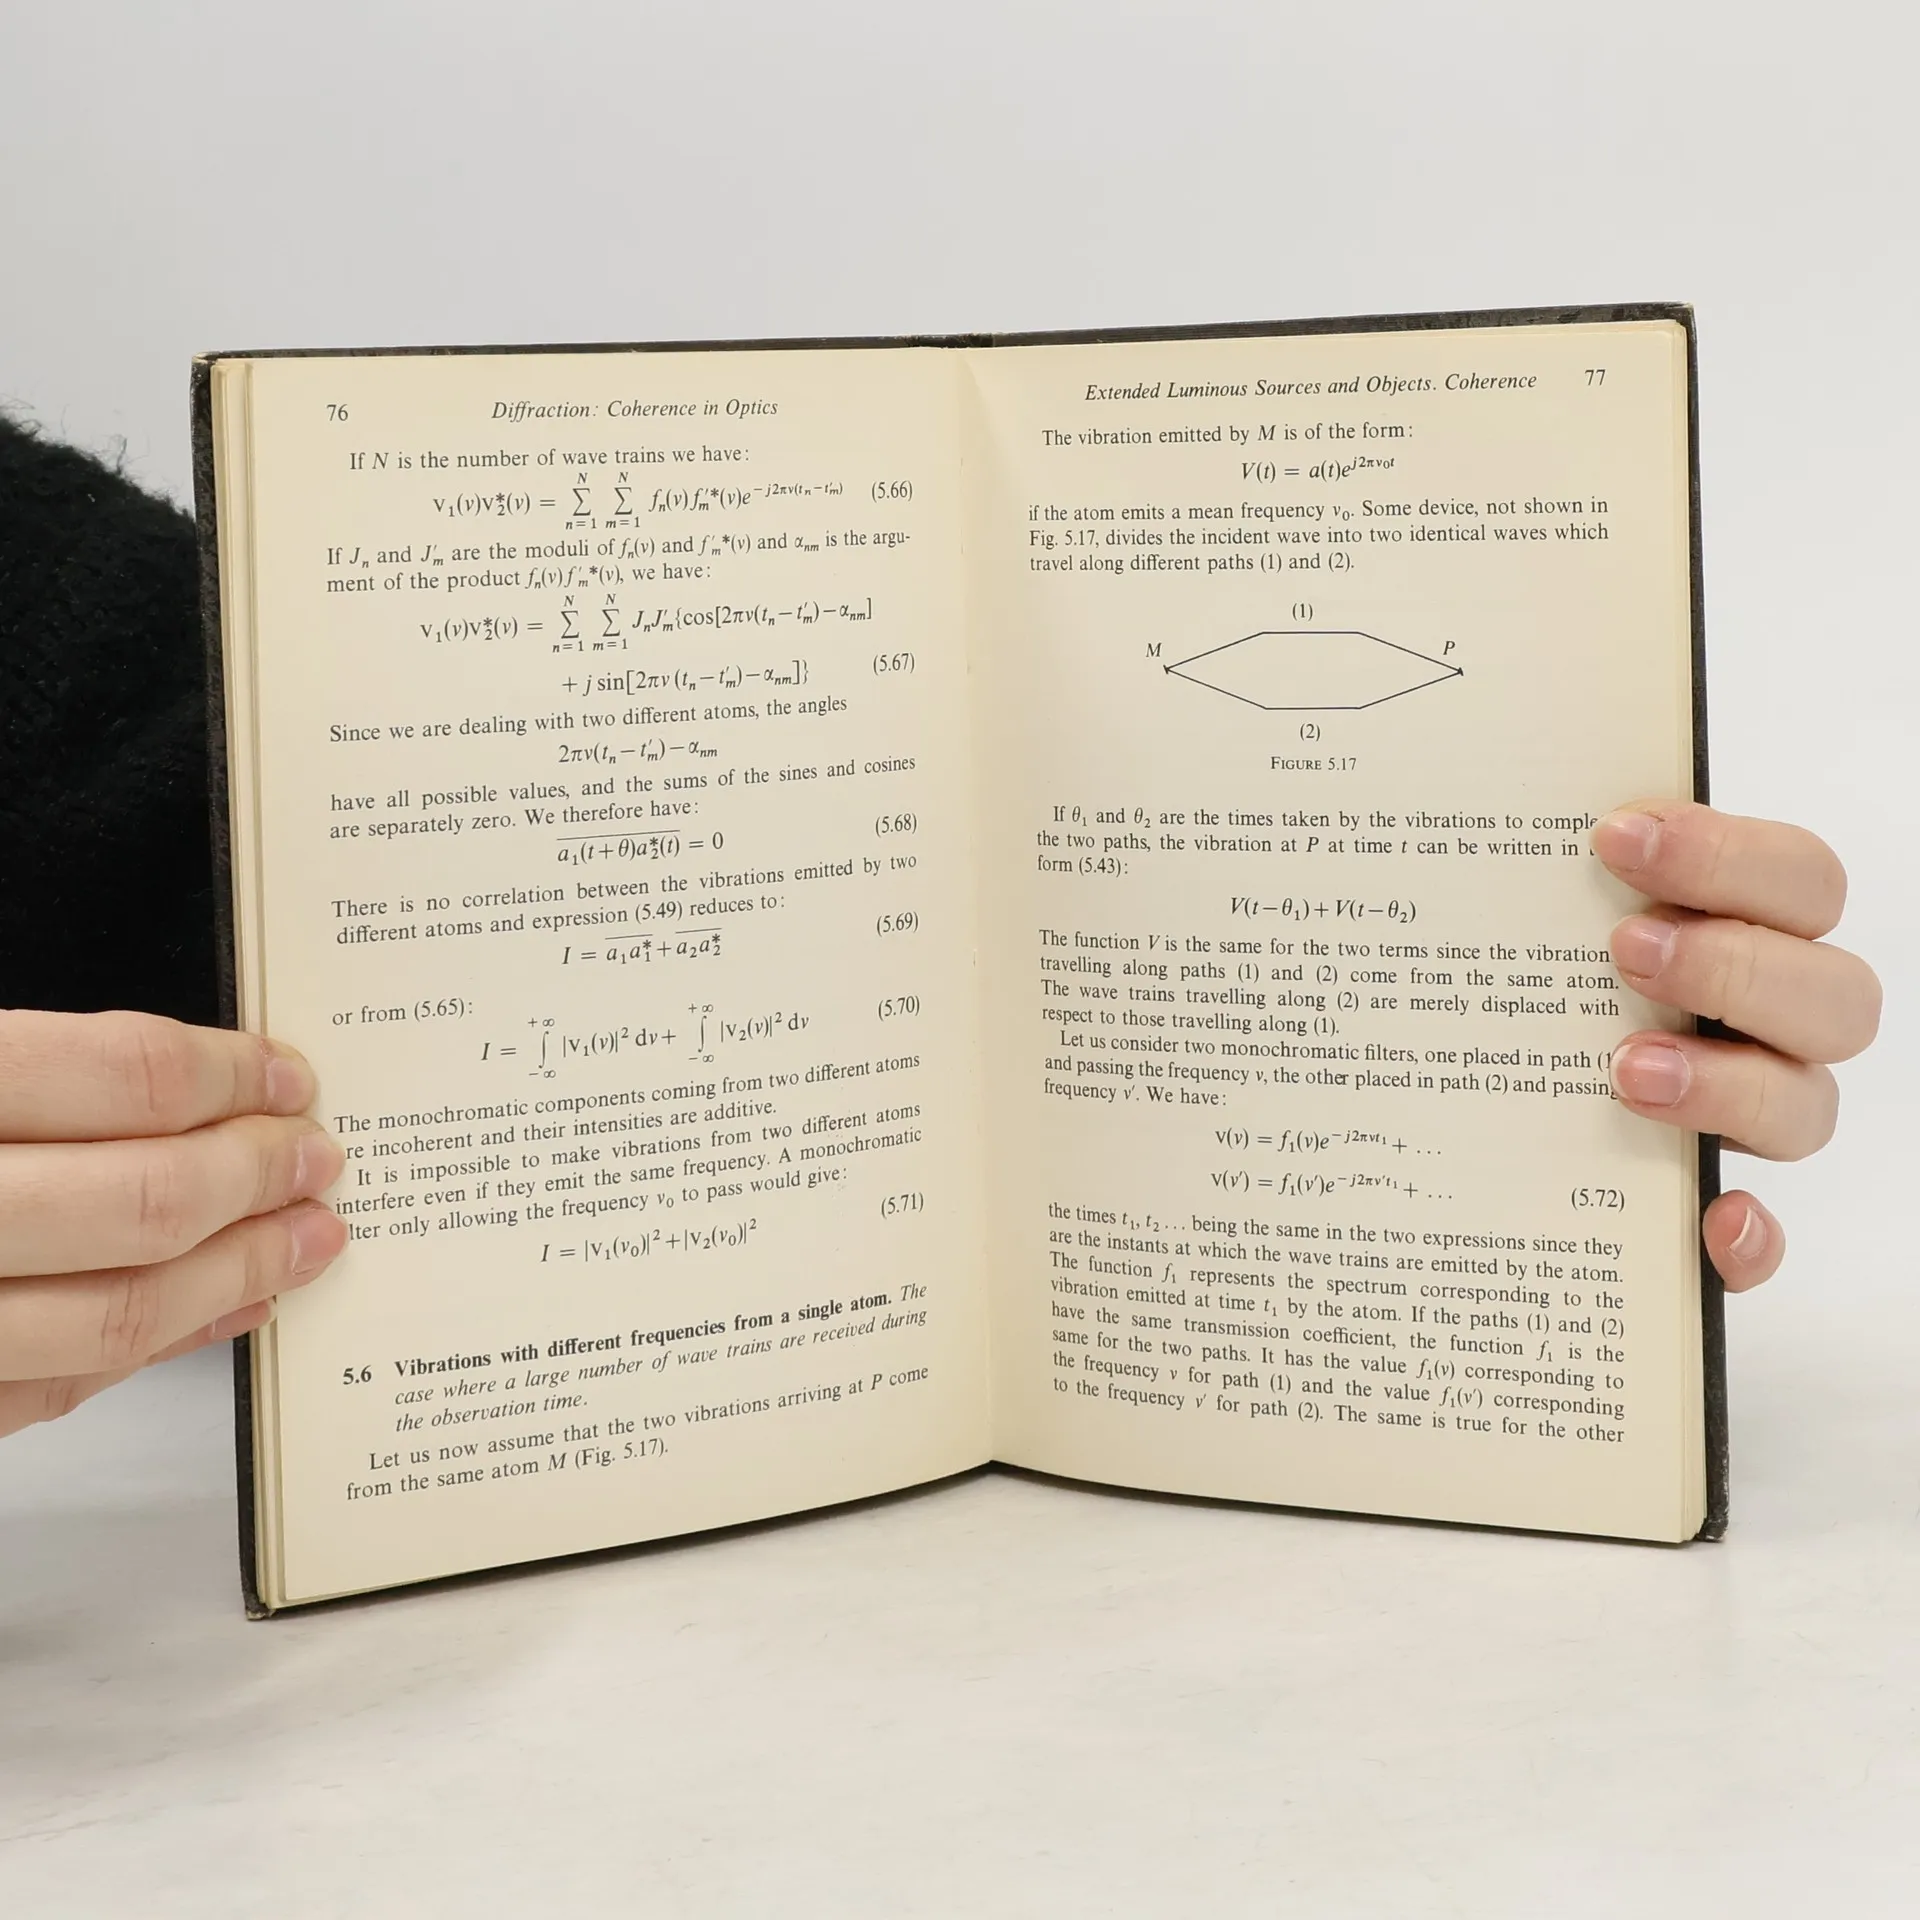 76
Diffraction: Coherence in Optics
If N is the number of wave trains we have:
v₁(ν)v₂*(ν) = Σ_{n=1}^{N} Σ_{m=1}^{N} fₙ(ν)f′ₘ*(ν)e^{−j2πν(tₙ−t′ₘ)} (5.66)
If Jₙ and J′ₘ are the moduli of fₙ(ν) and f′ₘ*(ν) and αₙₘ is the argu-
ment of the product fₙ(ν)f′ₘ*(ν), we have:
v₁(ν)v₂*(ν) = Σ_{n=1}^{N} Σ_{m=1}^{N} JₙJ′ₘ{cos[2πν(tₙ−t′ₘ)−αₙₘ]
+ j sin[2πν(tₙ−t′ₘ)−αₙₘ]} (5.67)
Since we are dealing with two different atoms, the angles
2πν(tₙ−t′ₘ)−αₙₘ
have all possible values, and the sums of the sines and cosines
are separately zero. We therefore have:
\overline{a₁(t+θ)a₂*(t)} = 0 (5.68)
There is no correlation between the vibrations emitted by two
different atoms and expression (5.49) reduces to:
I = \overline{a₁a₁*} + \overline{a₂a₂*} (5.69)
or from (5.65):
I = ∫_{−∞}^{+∞} |v₁(ν)|² dν + ∫_{−∞}^{+∞} |v₂(ν)|² dν (5.70)
The monochromatic components coming from two different atoms
re incoherent and their intensities are additive.
It is impossible to make vibrations from two different atoms
interfere even if they emit the same frequency. A monochromatic
lter only allowing the frequency ν₀ to pass would give:
I = |v₁(ν₀)|² + |v₂(ν₀)|² (5.71)
5.6 Vibrations with different frequencies from a single atom. The
case where a large number of wave trains are received during
the observation time.
Let us now assume that the two vibrations arriving at P come
from the same atom M (Fig. 5.17).
Extended Luminous Sources and Objects. Coherence 77
The vibration emitted by M is of the form:
V(t) = a(t)e^{j2πν₀t}
if the atom emits a mean frequency ν₀. Some device, not shown in
Fig. 5.17, divides the incident wave into two identical waves which
travel along different paths (1) and (2).
(1)
M P
(2)
FIGURE 5.17
If θ₁ and θ₂ are the times taken by the vibrations to comple
the two paths, the vibration at P at time t can be written in
form (5.43):
V(t−θ₁)+V(t−θ₂)
The function V is the same for the two terms since the vibration
travelling along paths (1) and (2) come from the same atom.
The wave trains travelling along (2) are merely displaced with
respect to those travelling along (1).
Let us consider two monochromatic filters, one placed in path (1
and passing the frequency ν, the other placed in path (2) and passing
frequency ν′. We have:
v(ν) = f₁(ν)e^{−j2πνt₁} + ...
v(ν′) = f₁(ν′)e^{−j2πν′t₁} + ... (5.72)
the times t₁, t₂ ... being the same in the two expressions since they
are the instants at which the wave trains are emitted by the atom.
The function f₁ represents the spectrum corresponding to the
vibration emitted at time t₁ by the atom. If the paths (1) and (2)
have the same transmission coefficient, the function f₁ is the
same for the two paths. It has the value f₁(ν) corresponding to
the frequency ν for path (1) and the value f₁(ν′) corresponding
to the frequency ν′ for path (2). The same is true for the other